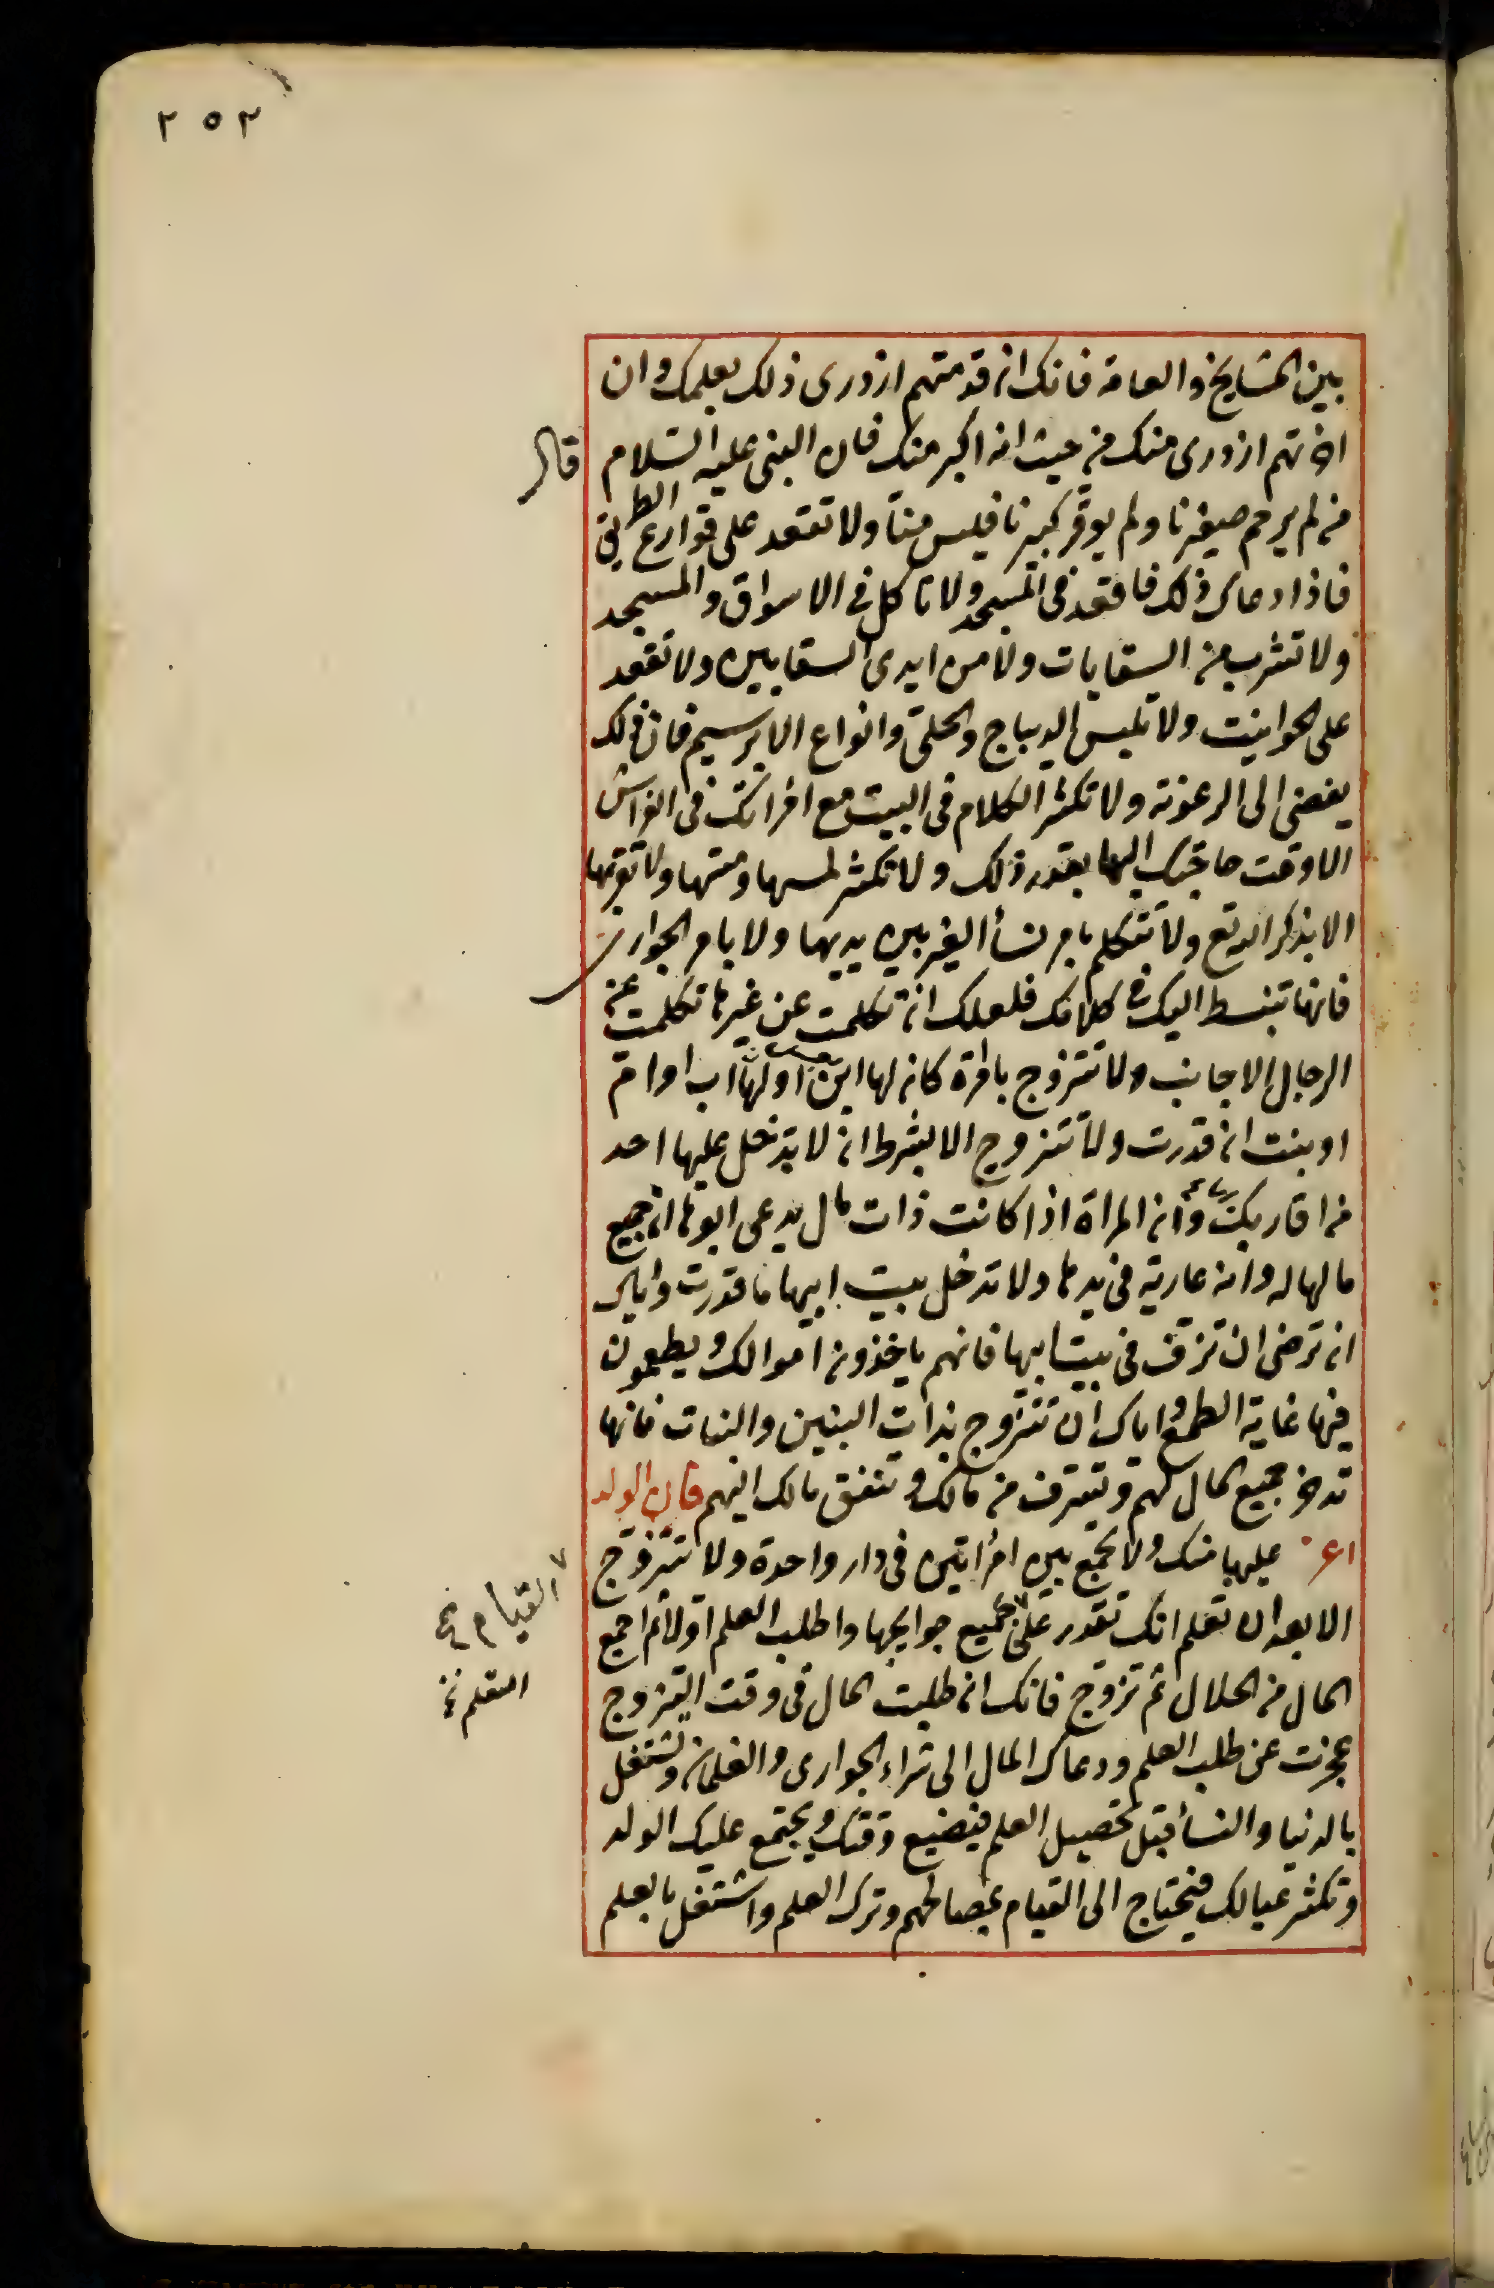 ٢٥٢
بين المشايخ والعامة فانك ان قدمتهم ازدرى ذلك بعلمك وان
اخرتهم ازدرى منك من حيث انه اكبر منك فان النبي عليه السلام
قال
من لم يرحم صغيرنا ولم يوقر كبيرنا فليس منا ولا تقعد على قوارع الطريق
فاذا دعاك ذلك فاقعد فى المسجد ولا تاكل فى الاسواق والمسجد
ولا تشرب من السقايات ولا من ايدى السقايين ولا تقعد
على الحوانيت ولا تلبس الديباج والحلى وانواع الابريسيم فان ذلك
يفضى الى الرعونة ولا تكثر الكلام فى البيت مع امرأتك فى الفراش
الا وقت حاجتك اليها بقدر ذلك ولا تكثر لمسها ومسها ولا تقربها
الا بذكر الله تع ولا تتكلم بامر نسأ الغير بين يديها ولا بامر الجوارى
فانها تنبسط اليك فى كلامك فلعلك ان تكلمت عن غيرها تكلمت عن
الرجال الاجانب ولا تتزوج بامرأة كان لها ابن او لها اب او ام
او بنت ان قدرت ولا تتزوج الا بشرط ان لا يدخل عليها احد
من اقاربك وان المراة اذا كانت ذات مال يدعى ابوها ان جميع
مالها له وانه عارية فى يدها ولا تدخل بيت ابيها ما قدرت واياك
ان ترضى ان تزف فى بيت ابيها فانهم ياخذون اموالك ويطمعون
فيها غاية الطمع واياك ان تتزوج بذات البنين والبنات فانها
تدخر جميع المال لهم وتسرف من مالك وتنفق مالك اليهم فان الولد
اعز عليها منك ولا تجمع بين امرأتين فى دار واحدة ولا تتزوج
الا بعد ان تعلم انك تقدر على جميع حوايجها واطلب العلم اولا ثم اجمع
القيام
التعلم
المال من الحلال ثم تزوج فانك ان طلبت المال فى وقت التزوج
عجزت عن طلب العلم ودعاك المال الى شراء الجوارى والغلمان وتشتغل
بالدنيا والنسأ قبل تحصيل العلم فيضيع وقتك ويجتمع عليك الولد
وتكثر عيالك فيحتاج الى القيام بمصالحهم وترك العلم واشتغل بالعلم